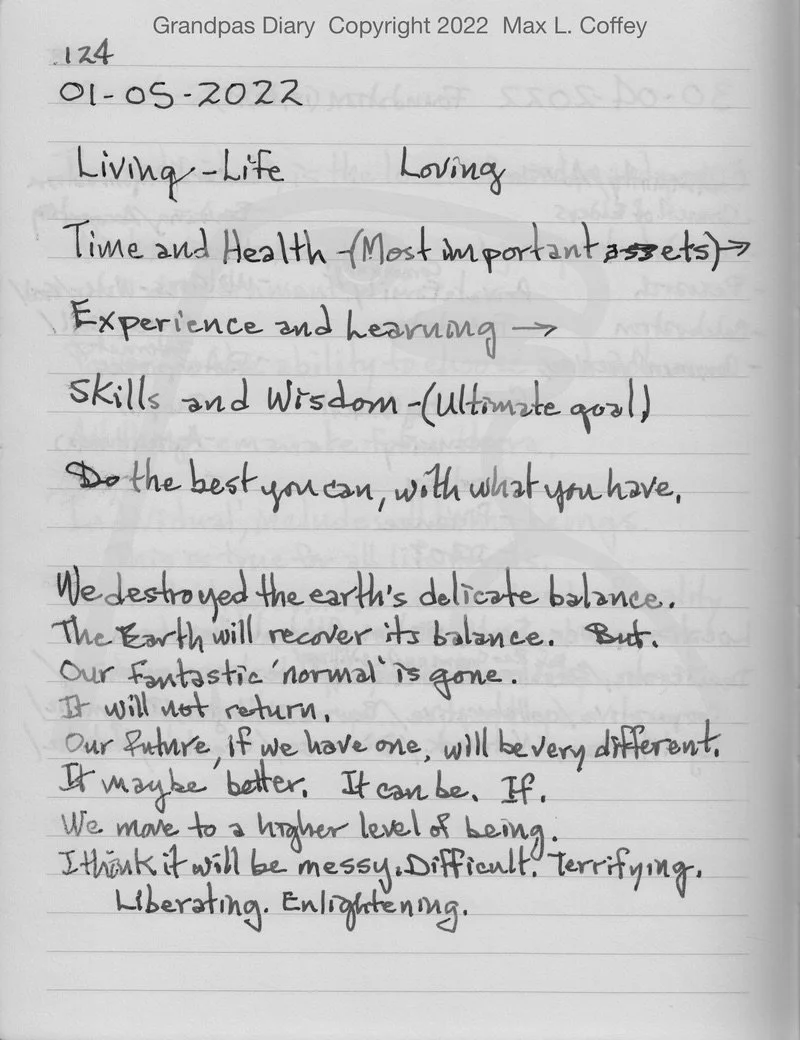 Grandpas Diary Copyright 2022 Max L. Coffey
124
01-05-2022
Living-Life Loving
Time and Health -(Most important assets)→
Experience and Learning →
Skills and Wisdom -(Ultimate goal)
Do the best you can, with what you have.
We destroyed the earth's delicate balance.
The Earth will recover its balance. But.
Our fantastic 'normal' is gone.
It will not return.
Our future, if we have one, will be very different.
It maybe better. It can be. If.
We move to a higher level of being.
I think it will be messy. Difficult. Terrifying.
Liberating. Enlightening.